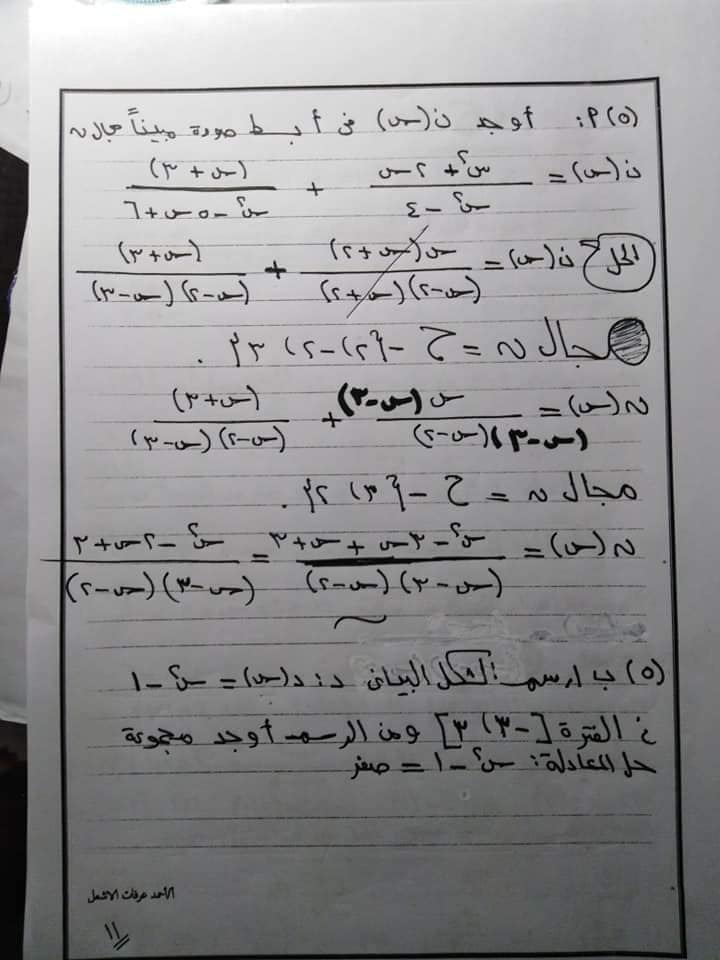 (٥) P: أوجد ن(س) فى أبسط صورة مبيناً مجال ن
ن(س) = (س² + ٢س) / (س² - ٤) + (س + ٣) / (س² - ٥س + ٦)
الحل ن(س) = س(س + ٢) / (س - ٢)(س + ٢) + (س + ٣) / (س - ٢)(س - ٣)
مجال ن = ح - {٢، -٢، ٣}.
ن(س) = س(س - ٣) / (س - ٣)(س - ٢) + (س + ٣) / (س - ٢)(س - ٣)
مجال ن = ح - {٣، ٢}.
ن(س) = (س² - ٣س + س + ٣) / (س - ٣)(س - ٢) = (س² - ٢س + ٣) / (س - ٣)(س - ٢)
(٥) ب ارسم الشكل البيانى د: د(س) = س² - ١
فى الفترة [-٣، ٣] ومن الرسم أوجد مجموعة
حل المعادلة: س² - ١ = صفر
أ/أحمد عرفات الاشعل
١١